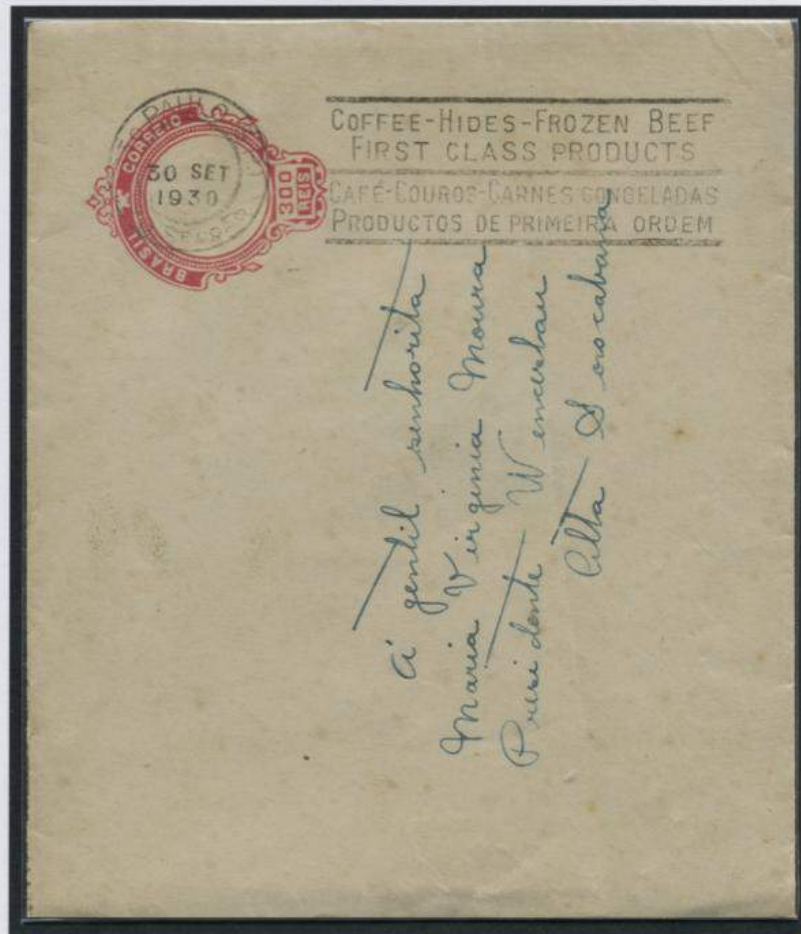 S. PAULO
30 SET
1930
CORREIO
BRASIL
300
REIS
COFFEE-HIDES-FROZEN BEEF
FIRST CLASS PRODUCTS
CAFÉ-COUROS-CARNES CONGELADAS
PRODUCTOS DE PRIMEIRA ORDEM
Á gentil senhorita
Maria Virginia Moura
Presidente Wenceslau
Alta Sorocabana